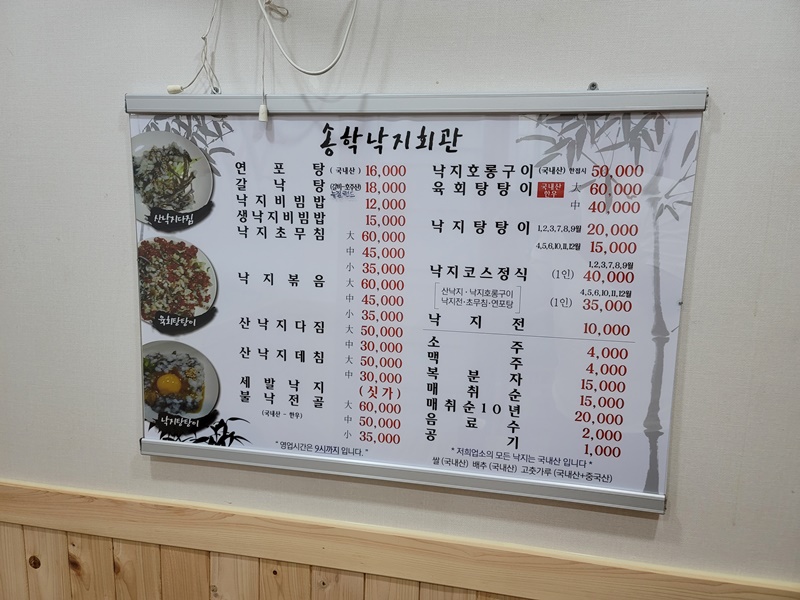 송학낙지회관
연포탕 (국내산) 16,000
갈낙탕 18,000
낙지비빔밥 12,000
생낙지비빔밥 15,000
낙지초무침 大 60,000
中 45,000
小 35,000
낙지볶음 大 60,000
中 45,000
小 35,000
산낙지다짐 大 50,000
中 30,000
산낙지데침 大 50,000
中 30,000
세발낙지 (싯가)
불낙전골 大 60,000
(국내산 - 한우) 中 50,000
小 35,000
* 영업시간은 9시까지 입니다. *
낙지호롱구이 (국내산) 한접시 50,000
육회탕탕이 국내산 한우 大 60,000
中 40,000
낙지탕탕이 1,2,3,7,8,9월 20,000
4,5,6,10,11,12월 15,000
1,2,3,7,8,9월
낙지코스정식 (1인) 40,000
산낙지 · 낙지호롱구이
4,5,6,10,11,12월
낙지전·초무침·연포탕 (1인) 35,000
낙지전 10,000
소주 4,000
맥주 4,000
복분자 15,000
매취순 15,000
매취순10년 20,000
음료수 2,000
공기 1,000
* 저희업소의 모든 낙지는 국내산 입니다 *
쌀 (국내산) 배추 (국내산) 고춧가루 (국내산+중국산)
산낙지다짐
육회탕탕이
낙지탕탕이